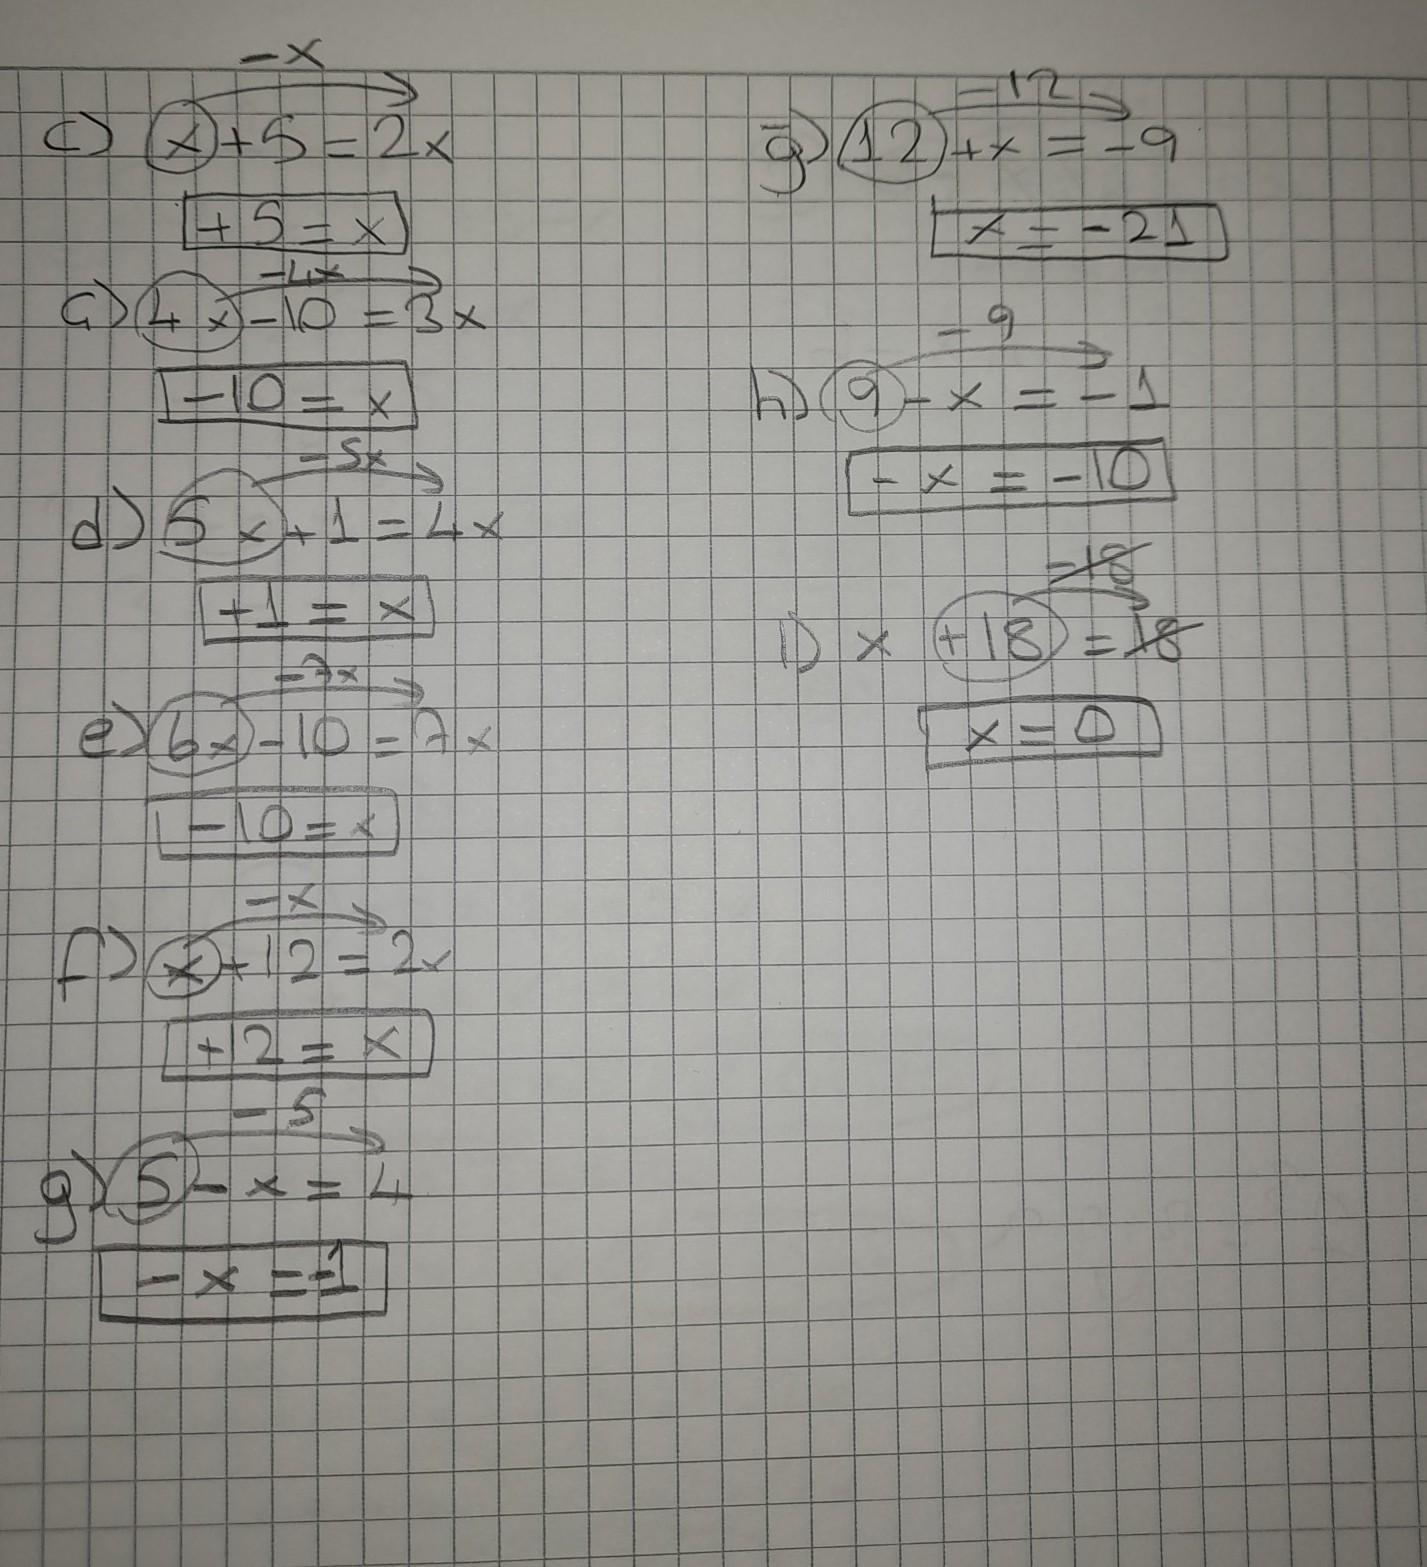 -x
c) x+5=2x
+5=x
-4x
ç) 4x-10=3x
-10=x
-5x
d) 5x+1=4x
+1=x
-7x
e) 6x-10=7x
-10=x
-x
f) x+12=2x
+12=x
-5
g) 5-x=4
-x=-1
-12
ğ) 12+x=-9
x=-21
-9
h) 9-x=-1
-x=-10
-18
ı) x+18=18
x=0